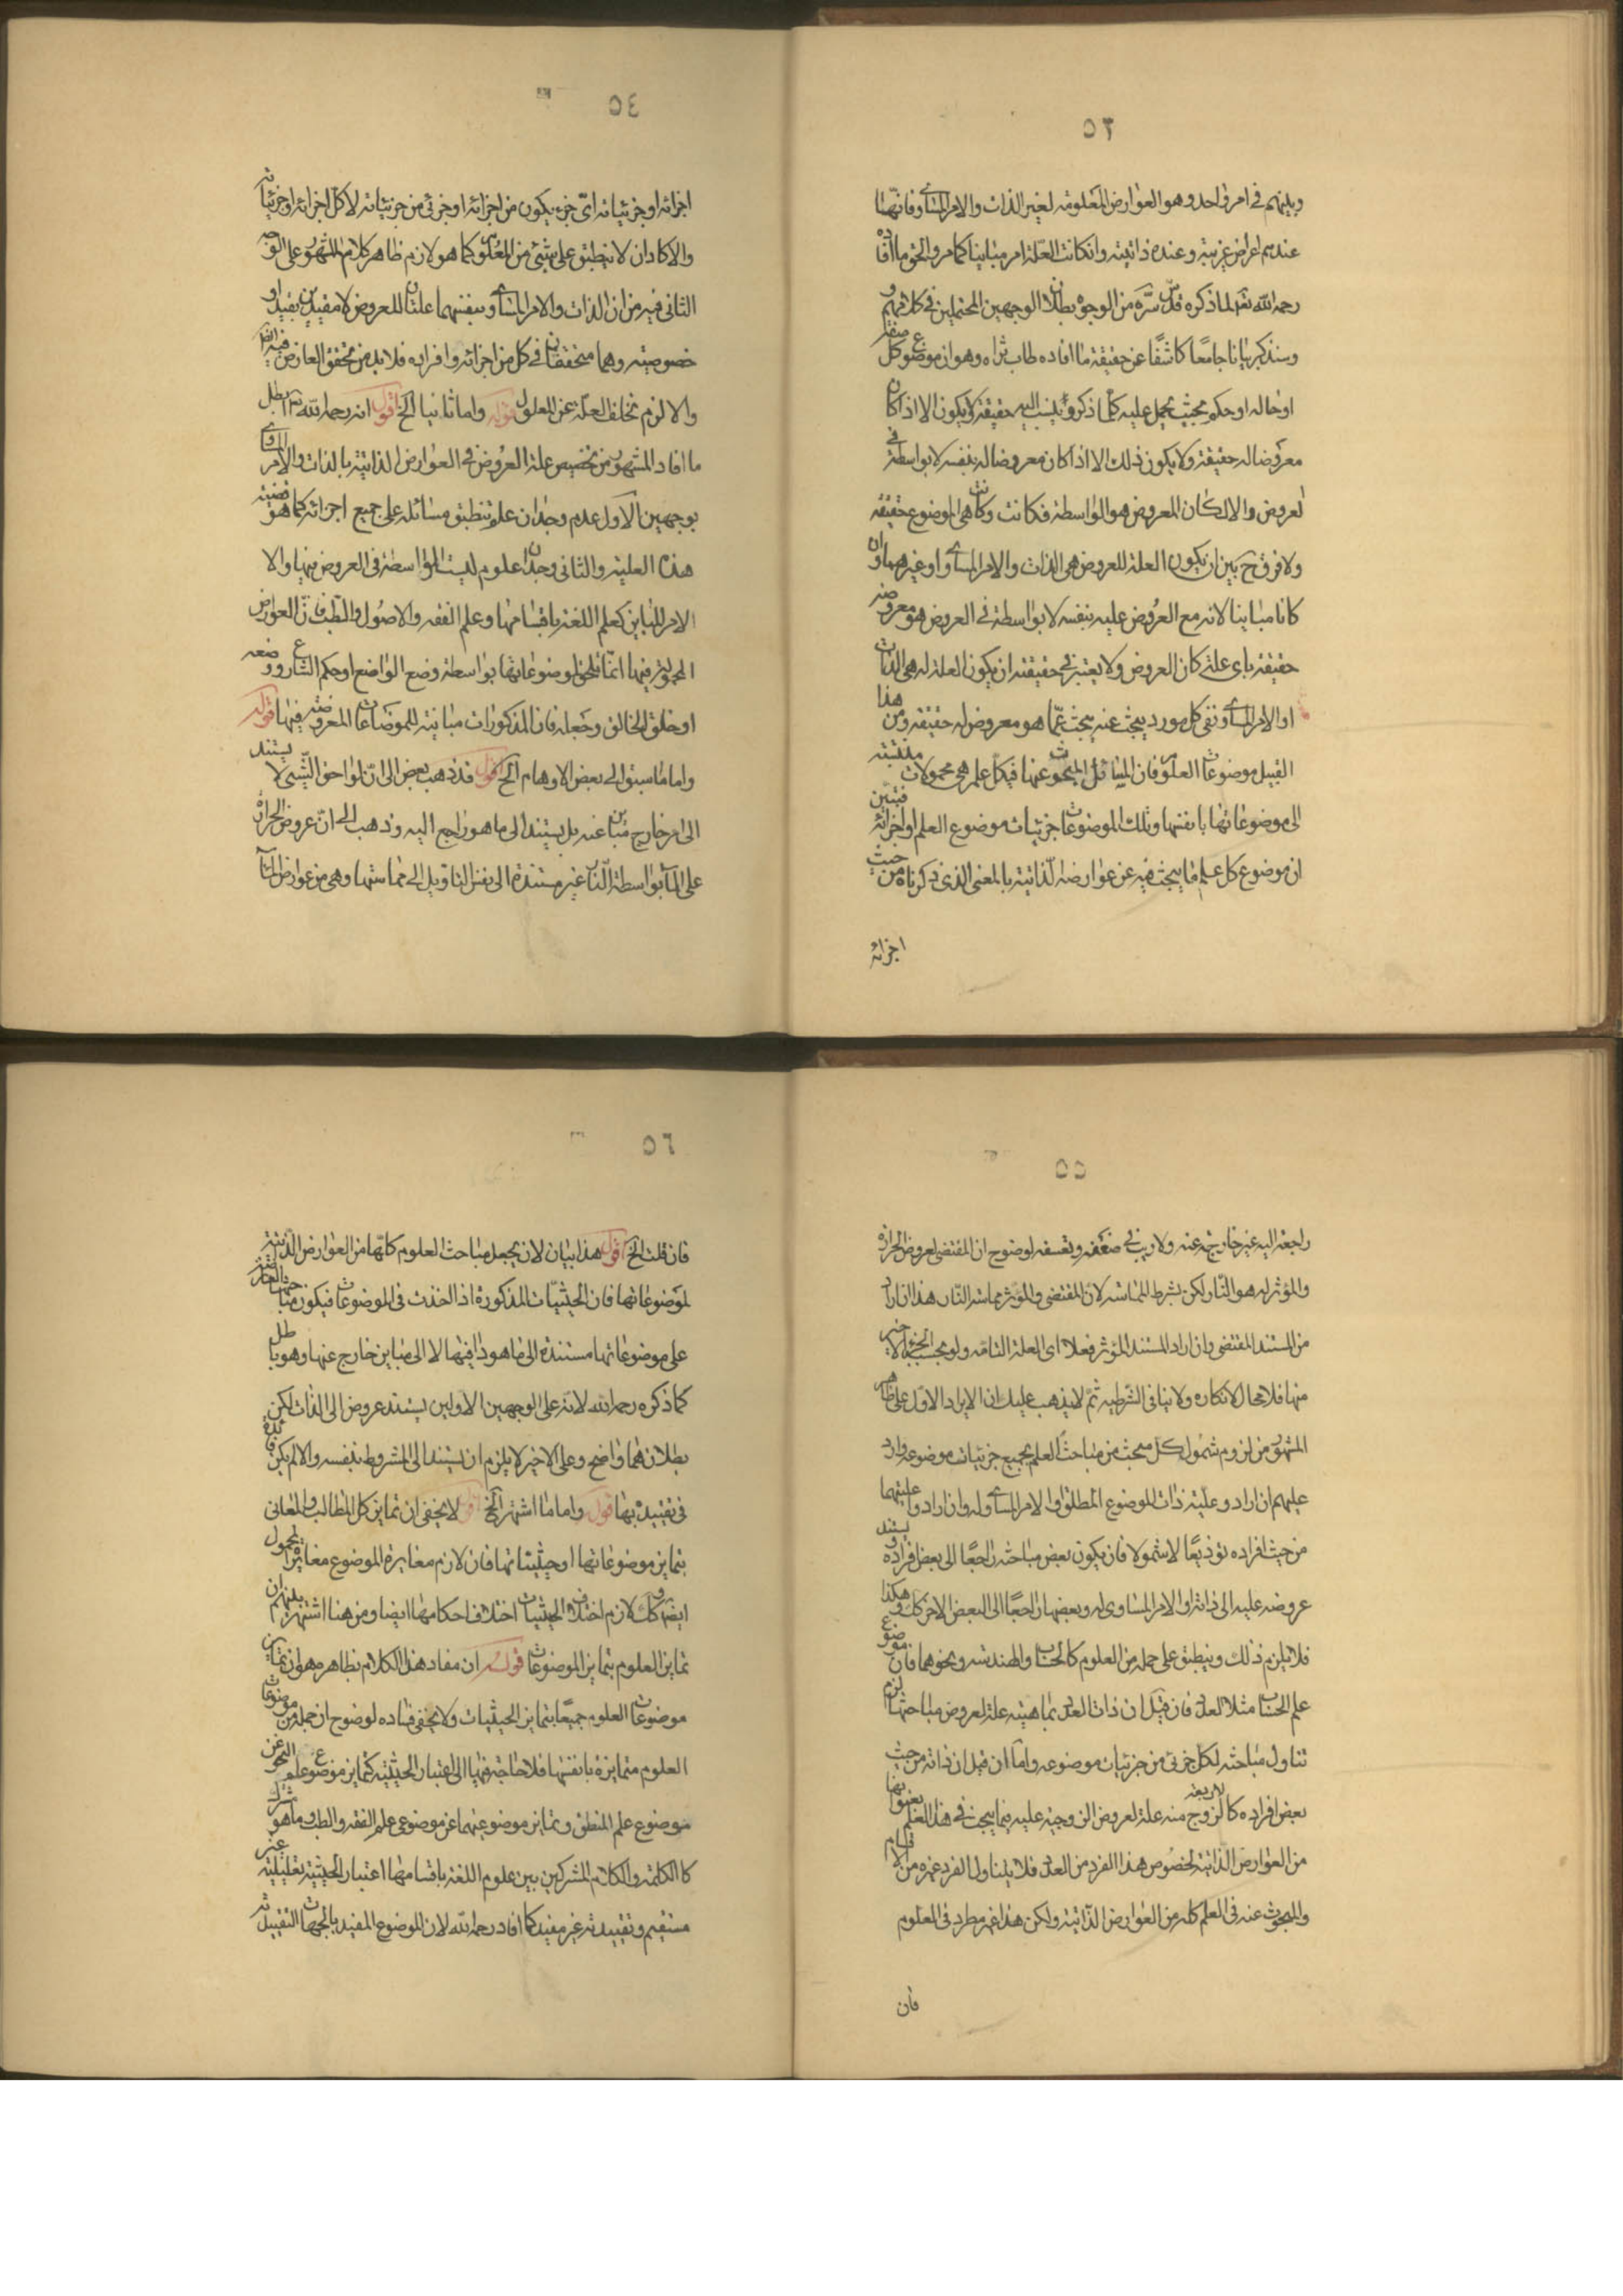 ٥٣
وبينهم في امر واحد وهو العوارض المعلومة لغير الذات والامر المساوي فانها
عندهم اعراض غريبة وعنده ذاتية وان كانت العلة امر مباينا كما مر والحق ما افاده
رحمه الله تعالى لما ذكره قدس سره من الوجوه بطلان الوجهين المحتملين في كلامهم و
سنذكر بيانا جامعا كاشفا عن حقيقة ما افاده طاب ثراه وهو ان موضوع كل
او حاله او حكمه بحيث يحمل عليه كما ذكروا ينسب اليه حقيقة لا يكون الا اذا كان
معروضا له حقيقة ولا يكون ذلك الا اذا كان معروضا له بنفسه لا بواسطة في
العروض والا لكان المعروض هو الواسطة فكانت وكانت هي الموضوع حقيقة
ولا فرق ح بين ان يكون العلة للعروض هي الذات والامر المساوي او غيرهما وان
كانا مباينا لانه مع العروض عليه بنفسه لا بواسطة في العروض هو معروضه
حقيقة باي علة كان العروض ولا يعتبر في حقيقته ان يكون العلة له هي الذات
او الامر المساوي ففي كل مورد يبحث عنه يبحث عما هو معروض له حقيقة ومن هذا
القبيل موضوعات العلوم فان المسائل المبحوث عنها في كل علم هي محمولات منتسبة
الى موضوعاتها بانفسها وتلك الموضوعات جزئيات موضوع العلم او اجزائه فتبين
ان موضوع كل علم ما يبحث فيه عن عوارضه الذاتية بالمعنى الذي ذكرناه من حيث
اجزائه
٥٤
اجزائه او جزئياته اي جزء يكون من اجزائه او جزئي من جزئياته لا كل اجزائه او جزئياته
والا كاد ان لا ينطبق على شيئ من العلوم كما هو لازم ظاهر كلام المشهور على الوجه
الثاني فيه من ان الذات والامر المساوي بنفسهما علتان للعروض لا مقيدين بقيد او
خصوصية وهما متحققان في كل من اجزائه وافراده فلا بد من تحقق العارض فيه ايضا
والا لزم تخلف العلة عن المعلول قوله واما ثانيا الخ اقول انه رحمه الله تعالى ابطل
ما افاد المشهور من تخصيص علة العروض في العوارض الذاتية بالذات والامر المساوي
بوجهين الاول عدم وجدان علم تنطبق مسائله على جميع اجزائه كما هو قضية
هذه العلية والثاني وجدان علوم ليست الواسطة في العروض فيها والا
الامر المباين كعلم اللغة باقسامها وعلم الفقه والاصول والطب فان العوارض
المحمولة فيها انما تلحق لموضوعاتها بواسطة وضع الواضع او حكم الشارع ووضعه
او خلق الخالق وجعله فان المذكورات مباينة للموضوعات المعروضة فيها قوله
واما ما سبق الى بعض الاوهام الخ اقول قد ذهب بعض الى ان لواحق الشيئ لا يستند
الى امر خارج مباين عنه بل يستند الى ما هو راجع اليه وذهب الى ان عروض الحرارة
على الماء بواسطة النار غير مستندة الى نفس النار وبل الى مماستها وهي من عوارض الماء
٥٥
راجعة اليه غير خارجة عنه ولا ريب في ضعفه وتعسفه لوضوح ان المقتضي لعروض الحرارة
والمؤثر له هو النار لكن بشرط المماسة لان المقتضي والمؤثر مماسة النار هذا ان اراد
من المستند المقتضي وان اراد المستند المؤثر فعلا اي العلة التامة ولو بحسب الجزء الاخير
منها فلا مجال لانكاره ولا ينافي الشرطية ثم لا يذهب عليك ان الايراد الاول على ظاهر
المشهور من لزوم شمول كل مبحث من مباحث العلم بجميع جزئيات موضوعه وارد
عليهم ان اراد وعلية ذات الموضوع المطلق او الامر المساوي له وان ارادوا عليتهما
من حيث افراده توزيعا لا شمولا فان يكون بعض مباحثه راجعا الى بعض افراده ويستند
عروضه عليه الى ذاته او الامر المساوي له وبعضها راجعا الى البعض الاخر كك وهكذا
فلا يلزم ذلك وينطبق على جملة من العلوم كالحساب والهندسة ونحوهما فان موضوع
علم الحساب مثلا العدد فان قيل ان ذات العدد بماهيته علة لعروض مباحثها لزم
تناول مباحثه لكل جزئي من جزئيات موضوعه واما ان قيل ان ذاته من حيث
بعض افراده كالزوج منه علة لعروض الزوجية عليه فيما يبحث في هذا العلم
من العوارض الذاتية لخصوص هذا الفرد من العدد فلا يتناول الفرد غيره من الاقسام
والمبحوث عنه في العلم كله من العوارض الذاتية ولكن هذا غير مطرد في العلوم
فان
٥٦
فان قلت الخ اقول هذا بيان لان يجعل مباحث العلوم كلها من العوارض الذاتية
لموضوعاتها فان الحيثيات المذكورة اذا اخذت في الموضوعات فيكون مباحثها العارضة
على موضوعاتها مستندة الى ما هو داخل فيها لا الى مباين خارج عنها وهو باطل
كما ذكره رحمه الله لانه على الوجهين الاولين يستند عروض الى الذات لكن
بطلانهما واضح وعلى الاخير لا يلزم ان يستند الى المشروط بنفسه والا لم يكن فائدة
في تقييده بها قوله واما ما اشتهر الخ اقول لا يخفى ان تمايز كل المطالب والمعاني
بتمايز موضوعاتها او حيثياتها فان لازم مغايرة الموضوع مغايرة المحمول
ايضا وكك لازم اختلاف الحيثيات اختلاف احكامها ايضا ومن هنا اشتهر بينهم ان
تمايز العلوم بتمايز الموضوعات قوله ان مفاد هذا الكلام بظاهره هو ان تمايز
موضوعات العلوم جميعا بتمايز الحيثيات ولا يخفى فساده لوضوح ان جملة من موضوعات
العلوم متمايزة بانفسها فلا حاجة فيها الى اعتبار الحيثية كتمايز موضوع علم النحو عن
موضوع علم المنطق وتمايز موضوعيهما عن موضوعي علم الفقه والطب وما هو مشترك
كالكلمة والكلام المشتركين بين علوم اللغة باقسامها اعتبار الحيثية تعليلية غير
مستقيم وتقييدية غير مفيد كما افاد رحمه الله لان الموضوع المقيد بالجهات التقييدية